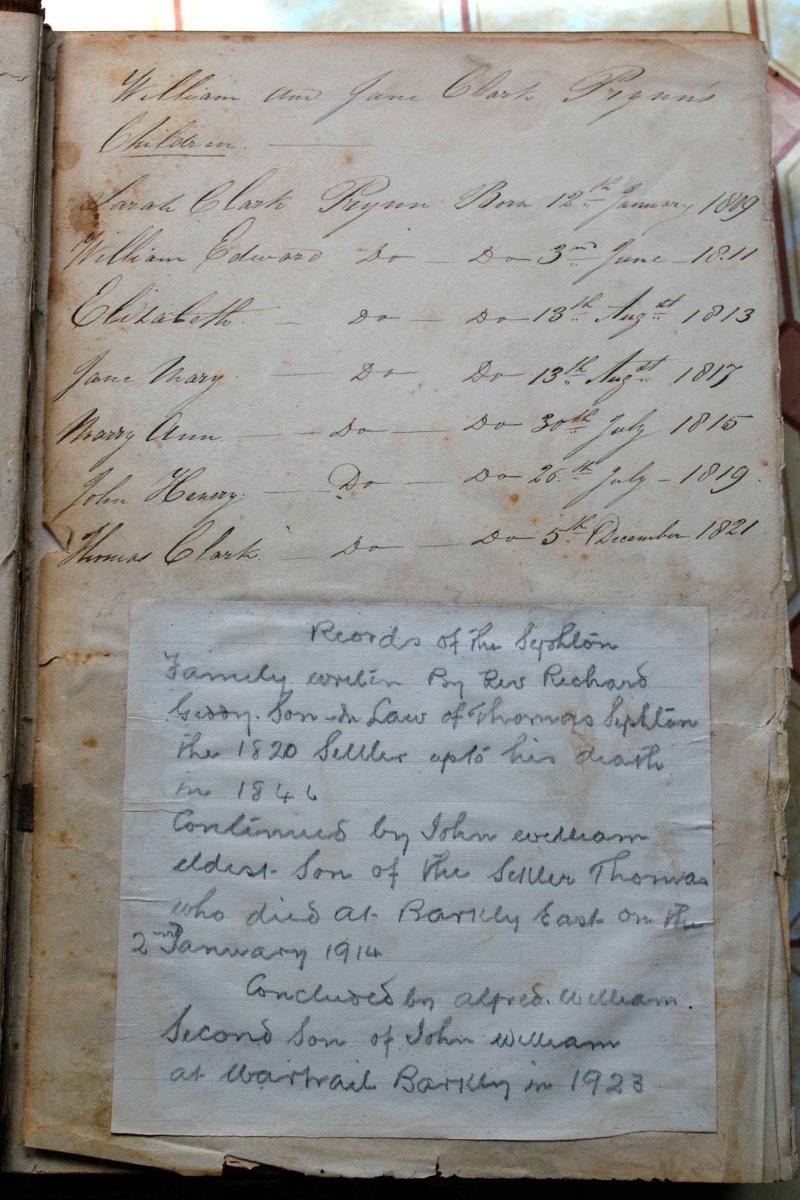 William and Jane Clark Prynn's
Children.
Sarah Clark Prynn Born 12th January 1809
William Edward Do - Do 3rd June - 1811
Elizabeth. - Do - Do - 13th Augst 1813
Jane Mary - Do - Do 13th Augst 1817
Marry Ann - Do - Do 30th July 1815
John Henery. - Do - Do 26th July - 1819.
Thomas Clark. - Do - Do - 5th December 1821
Records of the Sephton
Family writin By Rev Richard
Giddy. Son in Law of Thomas Sephton
the 1820 Settler upto his death
in 184
Continued by John William
eldest Son of the Settler Thomas
who died at Barkly East on the
2nd January 1914
Concluded by Alfred. William.
Second Son of John William
at Wartrail Barkly in 1923